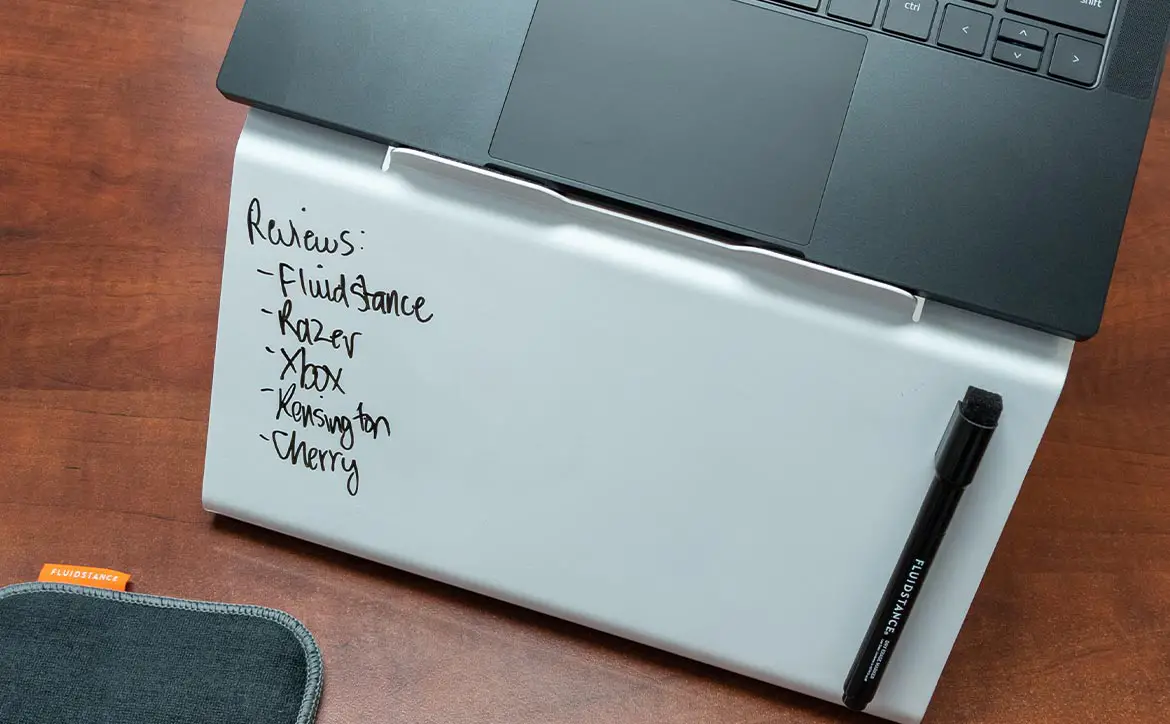 ctrl
shift
<
^
v
>
Reviews:
- Fluidstance
- Razer
- Xbox
- Kensington
- Cherry
FLUIDSTANCE
FLUIDSTANCE®
DRY ERASE MARKER